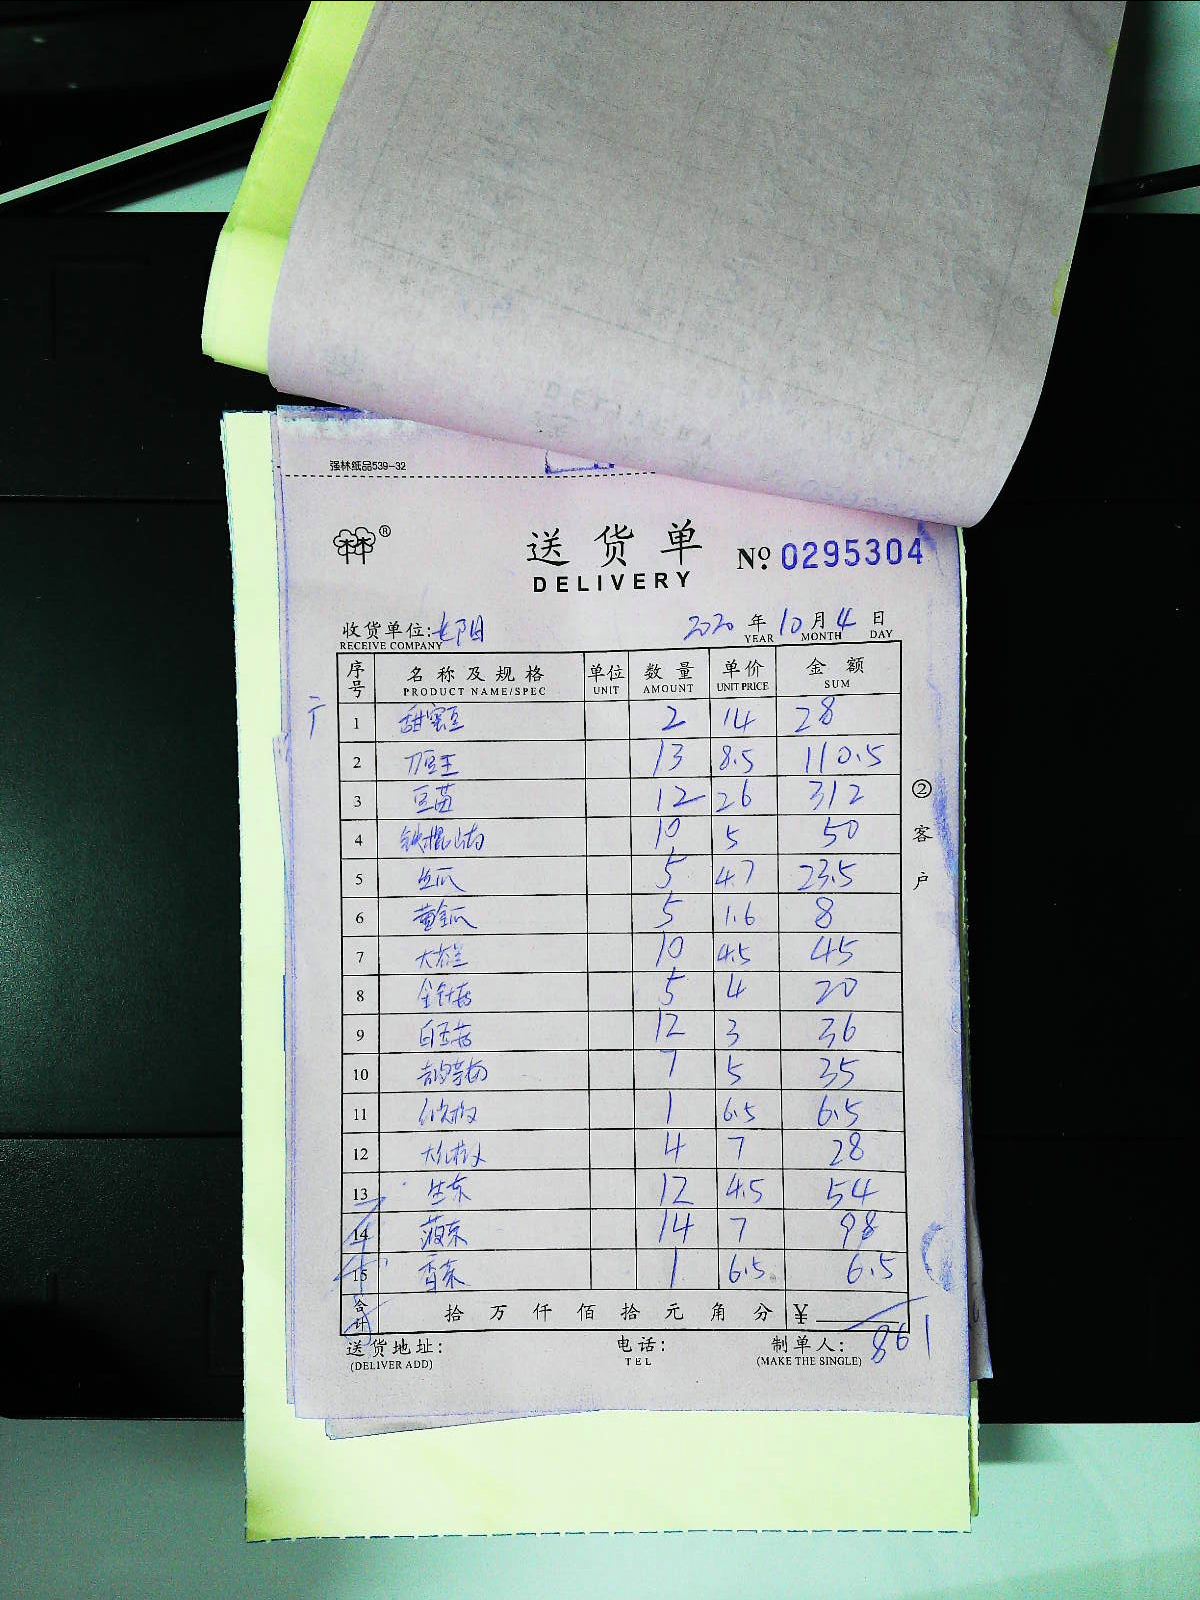 强林纸品539-32
®
送货单 № 0295304
DELIVERY
收货单位: 长阳 2020 年 10 月 4 日
RECEIVE COMPANY YEAR MONTH DAY
序号 名称及规格 单位 数量 单价 金额
PRODUCT NAME/SPEC UNIT AMOUNT UNIT PRICE SUM
1 甜蜜豆 2 14 28
2 刀豆王 13 8.5 110.5
3 豆苗 12 26 312
4 铁棍山药 10 5 50
5 丝瓜 5 4.7 23.5
6 黄金瓜 5 1.6 8
7 10 4.5 45
8 金针菇 5 4 20
9 白玉菇 12 3 36
10 7 5 35
11 1 6.5 6.5
12 4 7 28
13 生菜 12 4.5 54
14 菠菜 14 7 98
15 香菜 1 6.5 6.5
合计 拾 万 仟 佰 拾 元 角 分 ¥ 861
送货地址: 电话: 制单人:
(DELIVER ADD) TEL (MAKE THE SINGLE)
② 客户